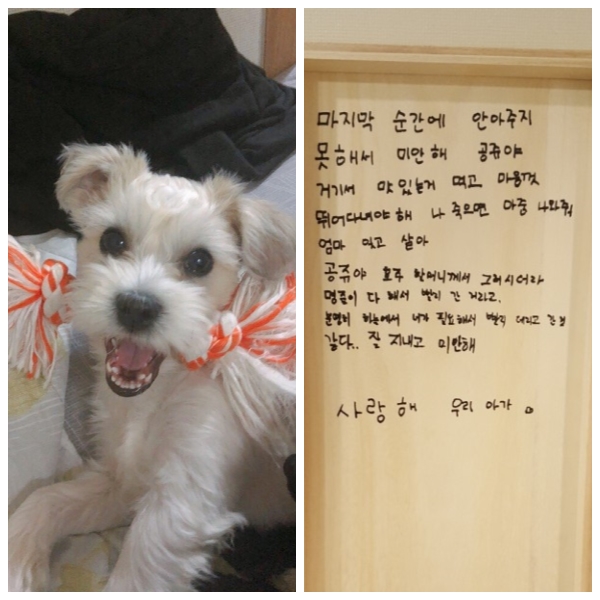 마지막 순간에 안아주지
못해서 미안해 공쥬야
거기서 맛있는거 먹고 마음껏
뛰어다녀야해 나 죽으면 마중 나와줘
엄마 믿고 살아
공쥬야 호주 할머니께서 그러시더라
명줄이 다 해서 빨리 간 거라고.
분명히 하늘에서 너가 필요해서 빨리 데리고 간 것
같다.. 잘 지내고 미안해
사랑해 우리 아가.